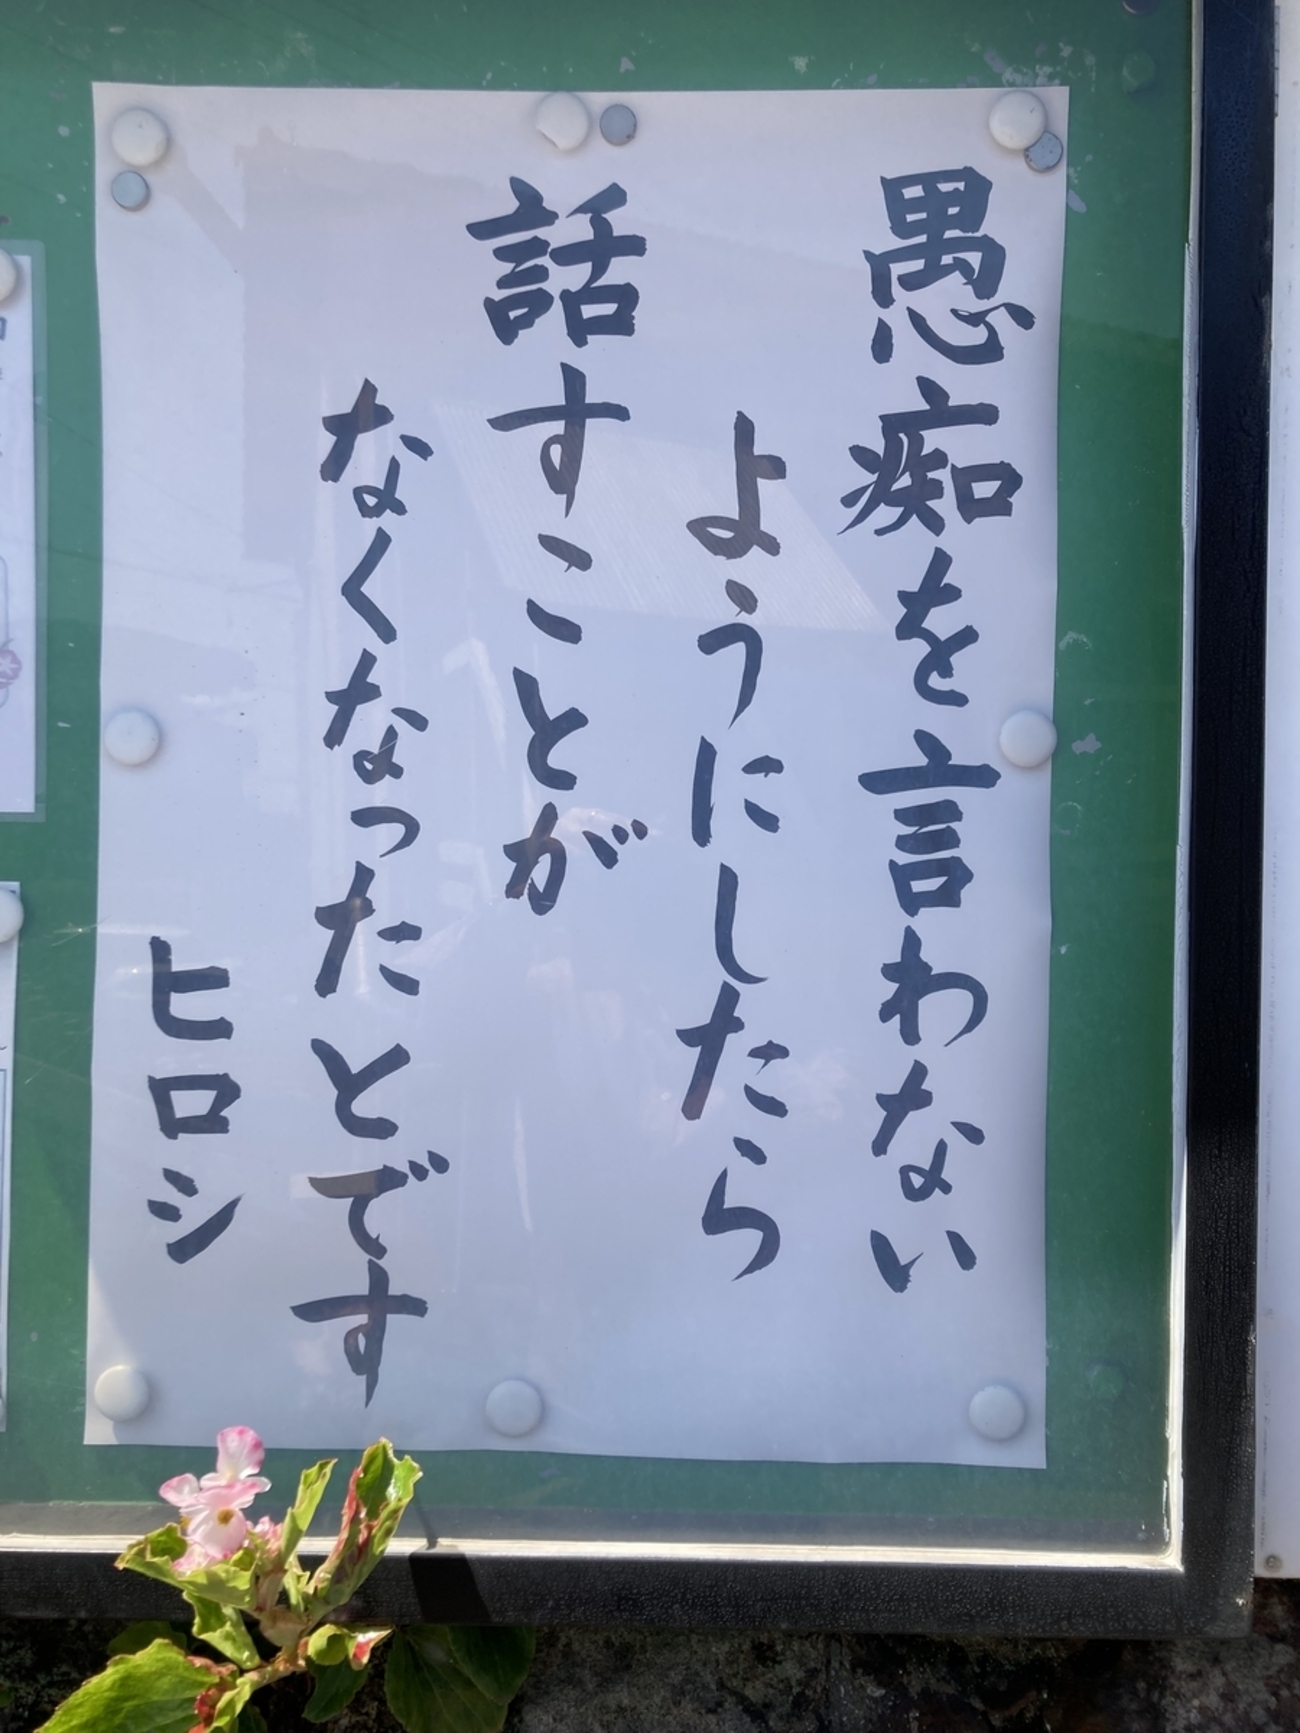 愚痴を言わない
ようにしたら
話すことが
なくなったとです
ヒロシ